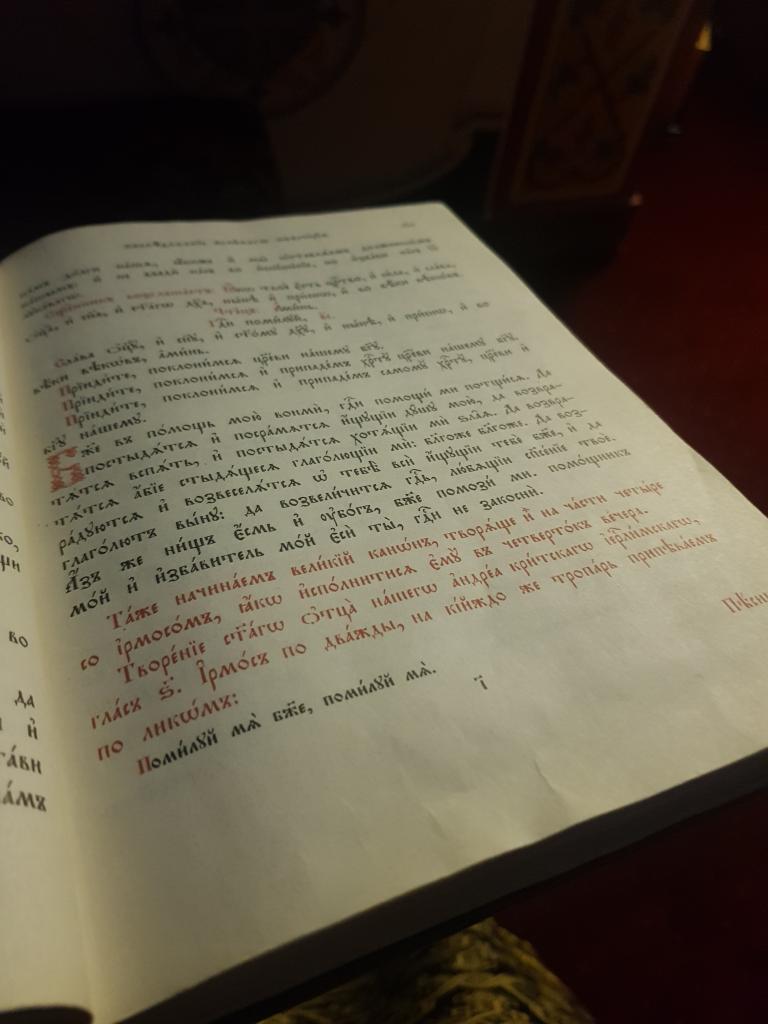 на́мъ до́лги на́шѧ, ꙗ҆́коже и҆ мы̀ ѡ҆ставлѧ́емъ должникѡ́мъ
на́шымъ: и҆ не введѝ на́съ во и҆скꙋше́нїе, но и҆зба́ви на́съ ѿ
лꙋка́вагѡ.
ца̀, и҆ сн҃а, и҆ ст҃а́гѡ дх҃а, ны́нѣ и҆ при́снѡ, и҆ во вѣ́ки вѣкѡ́въ.
Чте́цъ: А҆ми́нь.
Гдⷭ҇и поми́лꙋй. в҃і.
Сла́ва ѻ҆ц҃ꙋ̀, и҆ сн҃ꙋ, и҆ ст҃о́мꙋ дх҃ꙋ, и҆ ны́нѣ, и҆ при́снѡ, и҆ во
вѣ́ки вѣкѡ́въ, а҆ми́нь.
Прїиди́те, поклони́мсѧ цр҃е́ви на́шемꙋ бг҃ꙋ.
Прїиди́те, поклони́мсѧ и҆ припаде́мъ хрⷭ҇тꙋ̀ цр҃е́ви на́шемꙋ бг҃ꙋ.
Прїиди́те, поклони́мсѧ и҆ припаде́мъ самомꙋ̀ хрⷭ҇тꙋ̀, цр҃е́ви и҆
бг҃ꙋ на́шемꙋ.
Бж҃е въ по́мощь мою̀ вонмѝ, гдⷭ҇и помощи́ ми потщи́сѧ. Да
постыдѧ́тсѧ и҆ посра́мѧтсѧ и҆́щꙋщїи дꙋ́шꙋ мою̀, да возвра-
тѧ́тсѧ вспѧ́ть, и҆ постыдѧ́тсѧ хотѧ́щїи мѝ ѕла̑ѧ. Да возвра-
тѧ́тсѧ а҆́бїе стыдѧ́щесѧ глаго́лющїи мѝ: бла́гоже бла́гоже. Да воз-
ра́дꙋютсѧ и҆ возвеселѧ́тсѧ ѡ҆ тебѣ̀ всѝ и҆́щꙋщїи тебє̀ бж҃е, и҆ да
глаго́лютъ вы́нꙋ: да возвели́читсѧ гдⷭ҇ь, лю́бѧщїи сп҃се́нїе твоѐ.
А҆́зъ же ни́щъ є҆́смь и҆ ᲂу҆бо́гъ, бж҃е помози́ ми. помо́щникъ
мо́й и҆ и҆зба́витель мо́й є҆сѝ ты̀, гдⷭ҇и не закоснѝ.
Та́же начина́емъ вели́кїй кано́нъ, творѧ́ще и҆̀ на ча́сти четы́ре
со і҆рмосо́мъ, ꙗ҆́кѡ и҆спо́лнитисѧ є҆мꙋ̀ въ четверто́къ ве́чера.
Творе́нїе ст҃а́гѡ ѻ҆тца̀ на́шегѡ а҆ндре́а кри́тскагѡ і҆ерⷭ҇ли́мскагѡ,
гла́съ ѕ҃. І҆рмо́съ по два́жды, на кі́йждо же тропа́рь припѣва́емъ
по ликѡ́мъ:
Поми́лꙋй мѧ̀ бж҃е, поми́лꙋй мѧ̀.
і҃
Пѣсн
во
да
и҆